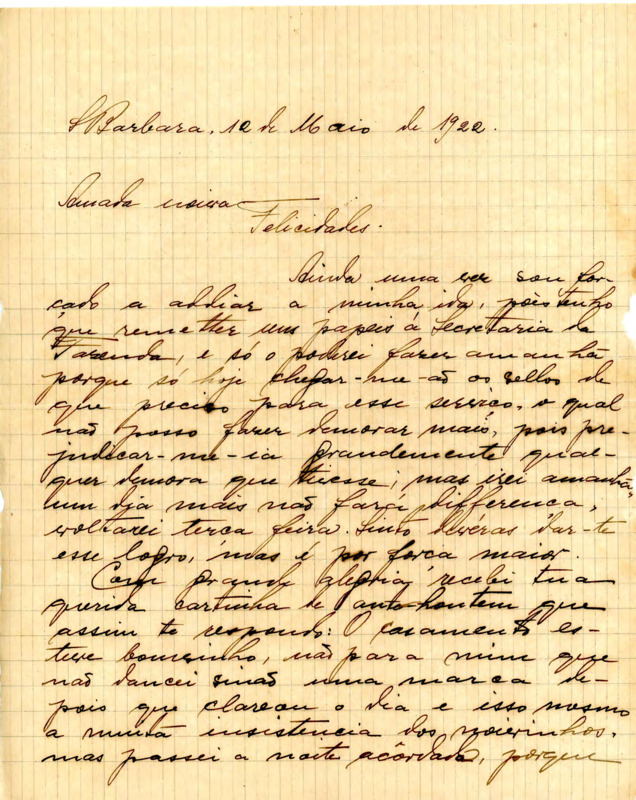 S Barbara, 12 de Maio de 1922.
Amada noiva
Felicidades.
Ainda uma vez sou for-
çado a addiar a minha ida, pois tenho
que remetter uns papeis á Secretaria da
Fazenda, e só o poderei fazer amanhã
porque só hoje chegar-me-ão os sellos de
que preciso para esse serviço, o qual
não posso fazer demorar mais, pois pre-
judicar-me-ia grandemente qual-
quer demora que tivesse; mas irei amanhã,
um dia mais não fará differença,
voltarei terça feira. Sinto deveras dar-te
esse logro, mas é por força maior.
Com grande alegria, recebi tua
querida cartinha de ante-hontem que
assim te respondo: O casamento es-
teve bomzinho, não para mim que
não dancei sinão uma marca de-
pois que clareou o dia e isso mesmo
a muita insistencia dos noivinhos,
mas passei a noite acórdado, porque